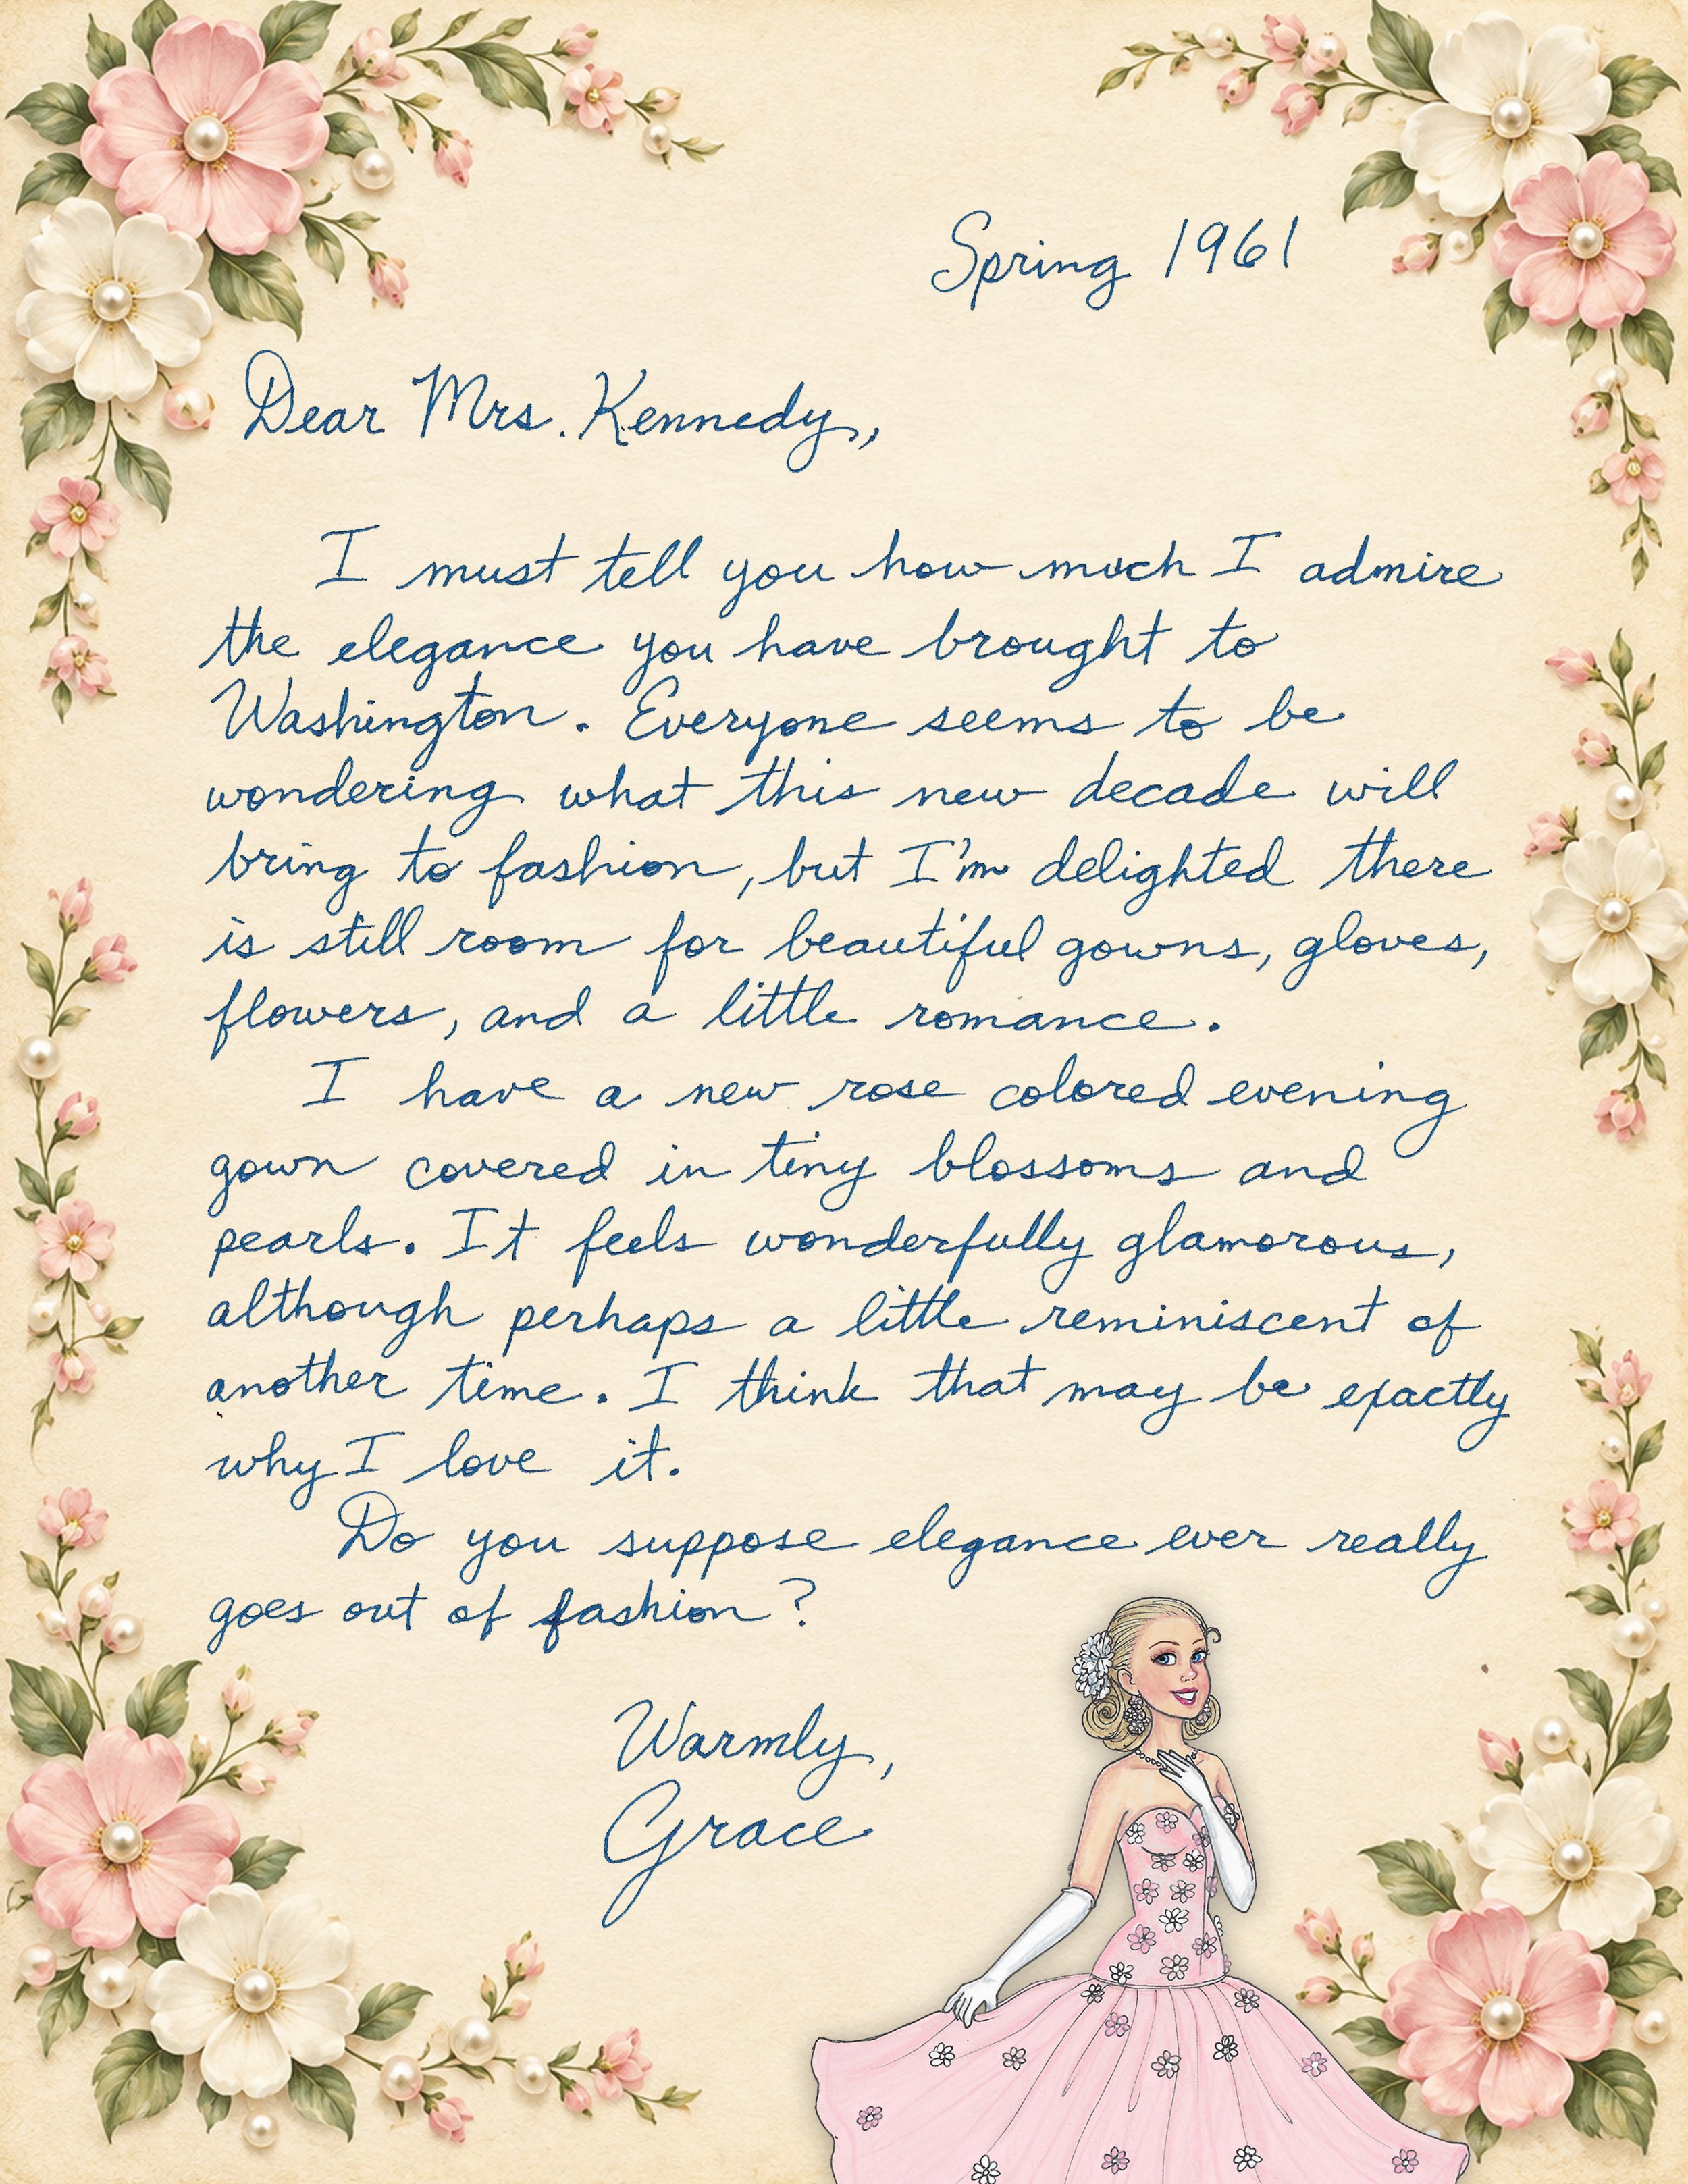 Spring 1961
Dear Mrs. Kennedy,
I must tell you how much I admire
the elegance you have brought to
Washington. Everyone seems to be
wondering what this new decade will
bring to fashion, but I'm delighted there
is still room for beautiful gowns, gloves,
flowers, and a little romance.
I have a new rose colored evening
gown covered in tiny blossoms and
pearls. It feels wonderfully glamorous,
although perhaps a little reminiscent of
another time. I think that may be exactly
why I love it.
Do you suppose elegance ever really
goes out of fashion?
Warmly,
Grace